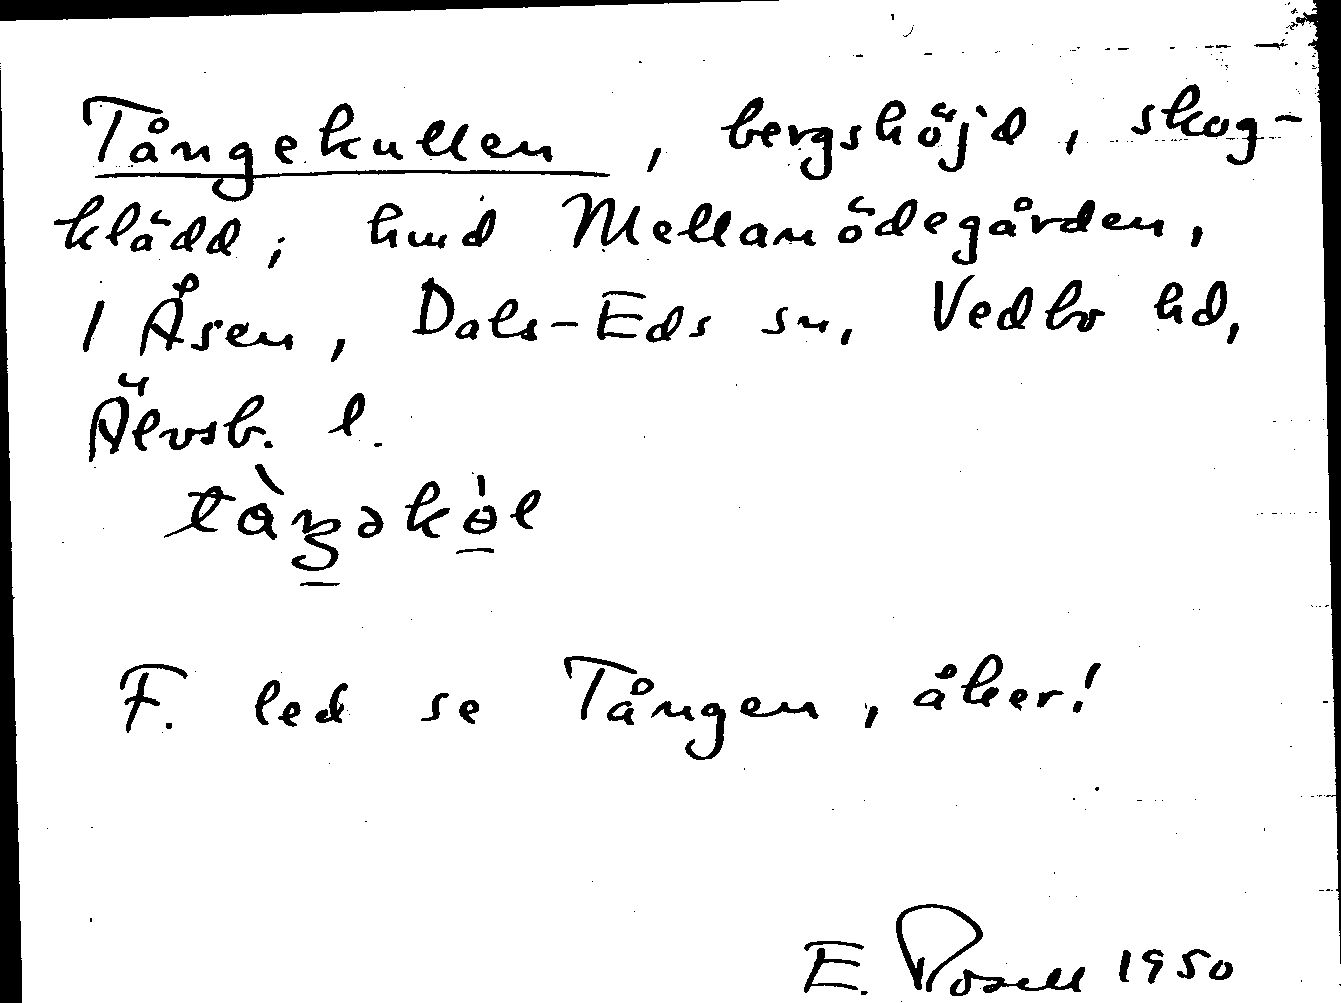 Tångekullen, bergshöjd, skog-
klädd, hmd Mellanödegården,
1 Åsen, Dals-Eds sn, Vedbo hd,
Älvsb. l.
F. led se Tången, åker!
E. Rosell 1950